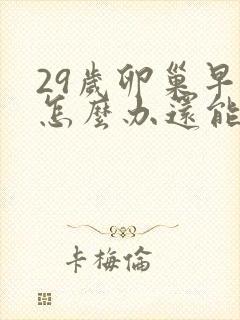 29歲卵巢早
怎麼办還能
卡梅倫